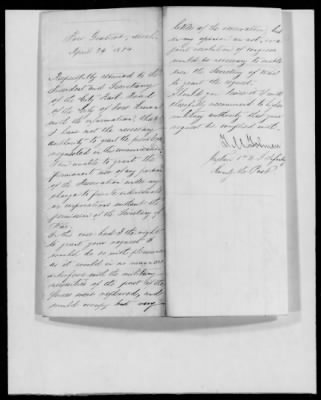 Fort Gratiot, Mich.
April 24, 1874
Respectfully returned to the
President and Secretary
of the City Park Board
of the City of Port Huron
with the information, that
I have not the necessary
authority to grant the privilege
requested in the communication.
I am unable to grant the
permanent use of any portion
of the Reservation under my
charge to private individuals
or corporations without the
permission of the Secretary of
War.
In this case had I the right
to grant your request I
would do so with pleasure
as it would in no manner
interfere with the military
of the post if the
fences were replaced, and
would occupy but very
little of the reservation, but
in my opinion an act, or a
joint resolution of congress
would be necessary to enable
even the Secretary of War
to grant the request.
I would
cheerfully recommend to higher
military authority that your
request be complied with.
Captain 1st Infantry
Comdg the Post